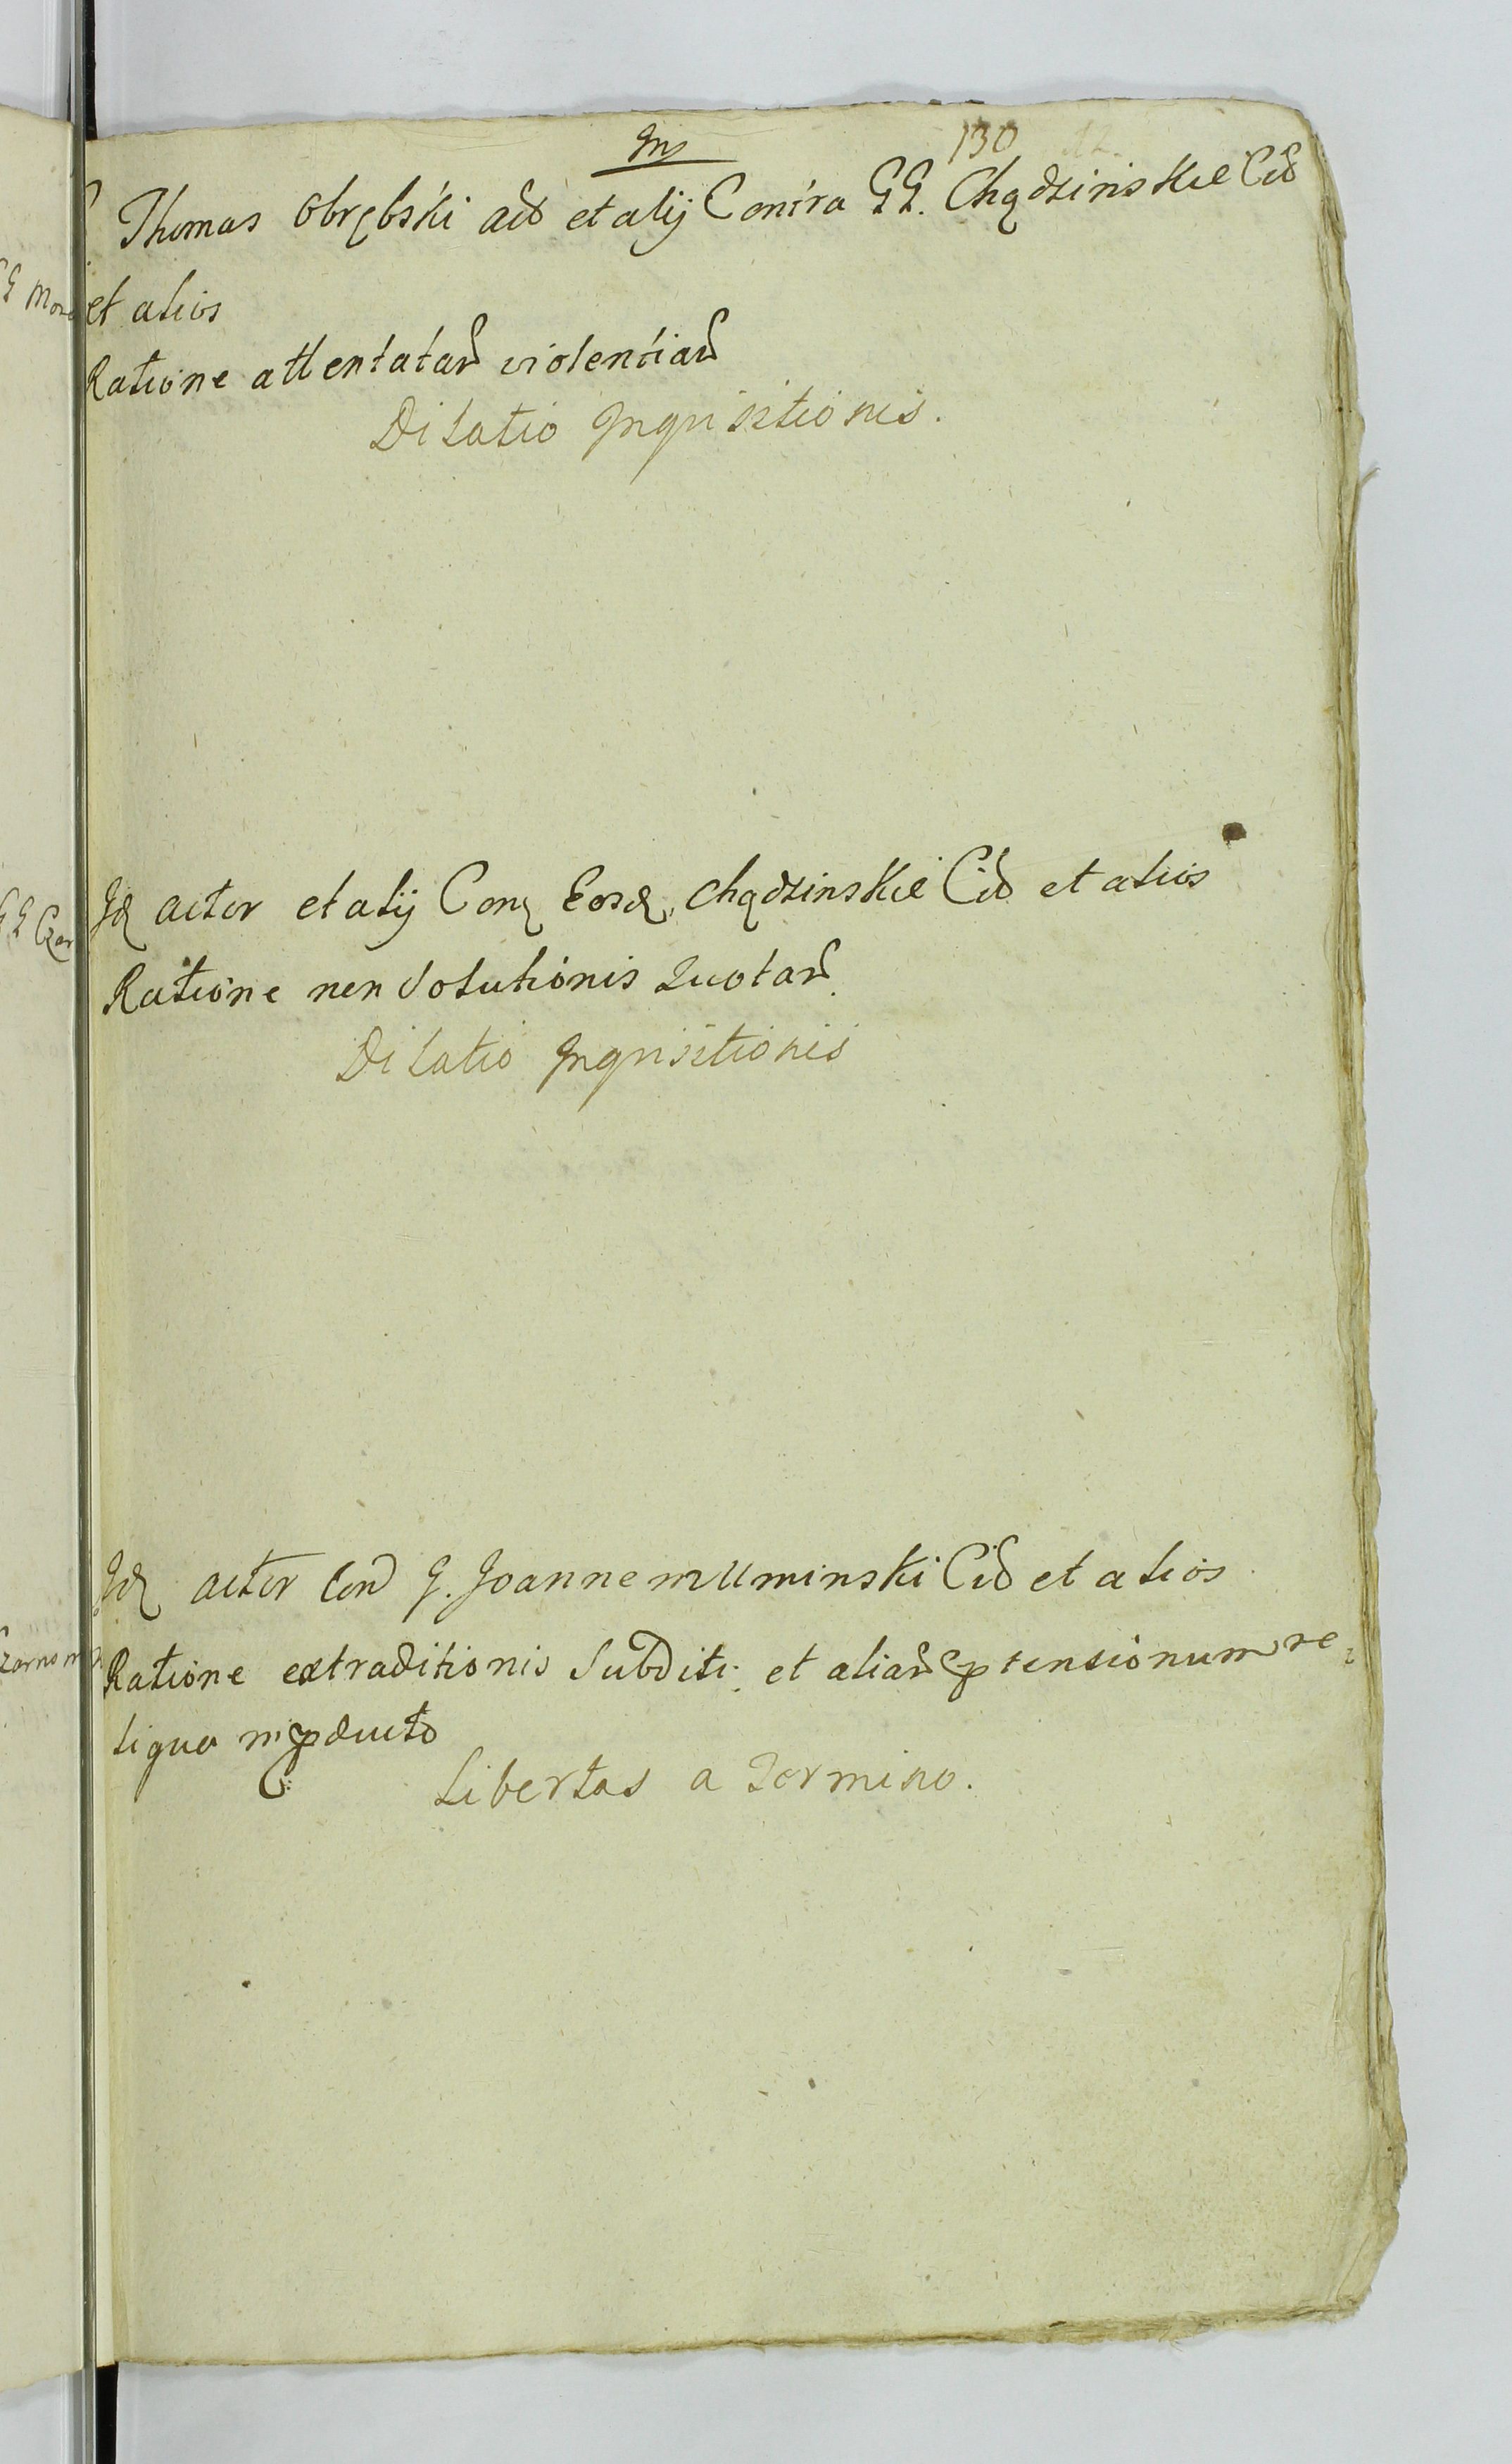 130
Thomas Obrębski act et alij Contra GG. Chądzinskie Cit
et alios
Ratione attentatar violentiar
Dilatio Inquisitionis.
Id actor et alij Con Eosd. Chądzinskie Cit et alios
Ratione non Solutionis Quotar
Dilatio Inquisitionis
Id actor Con G. Joannem Uminski Cit et alios
Ratione extraditionis Subditi et aliar ptensionum re
liqua in
Libertas a Termino.